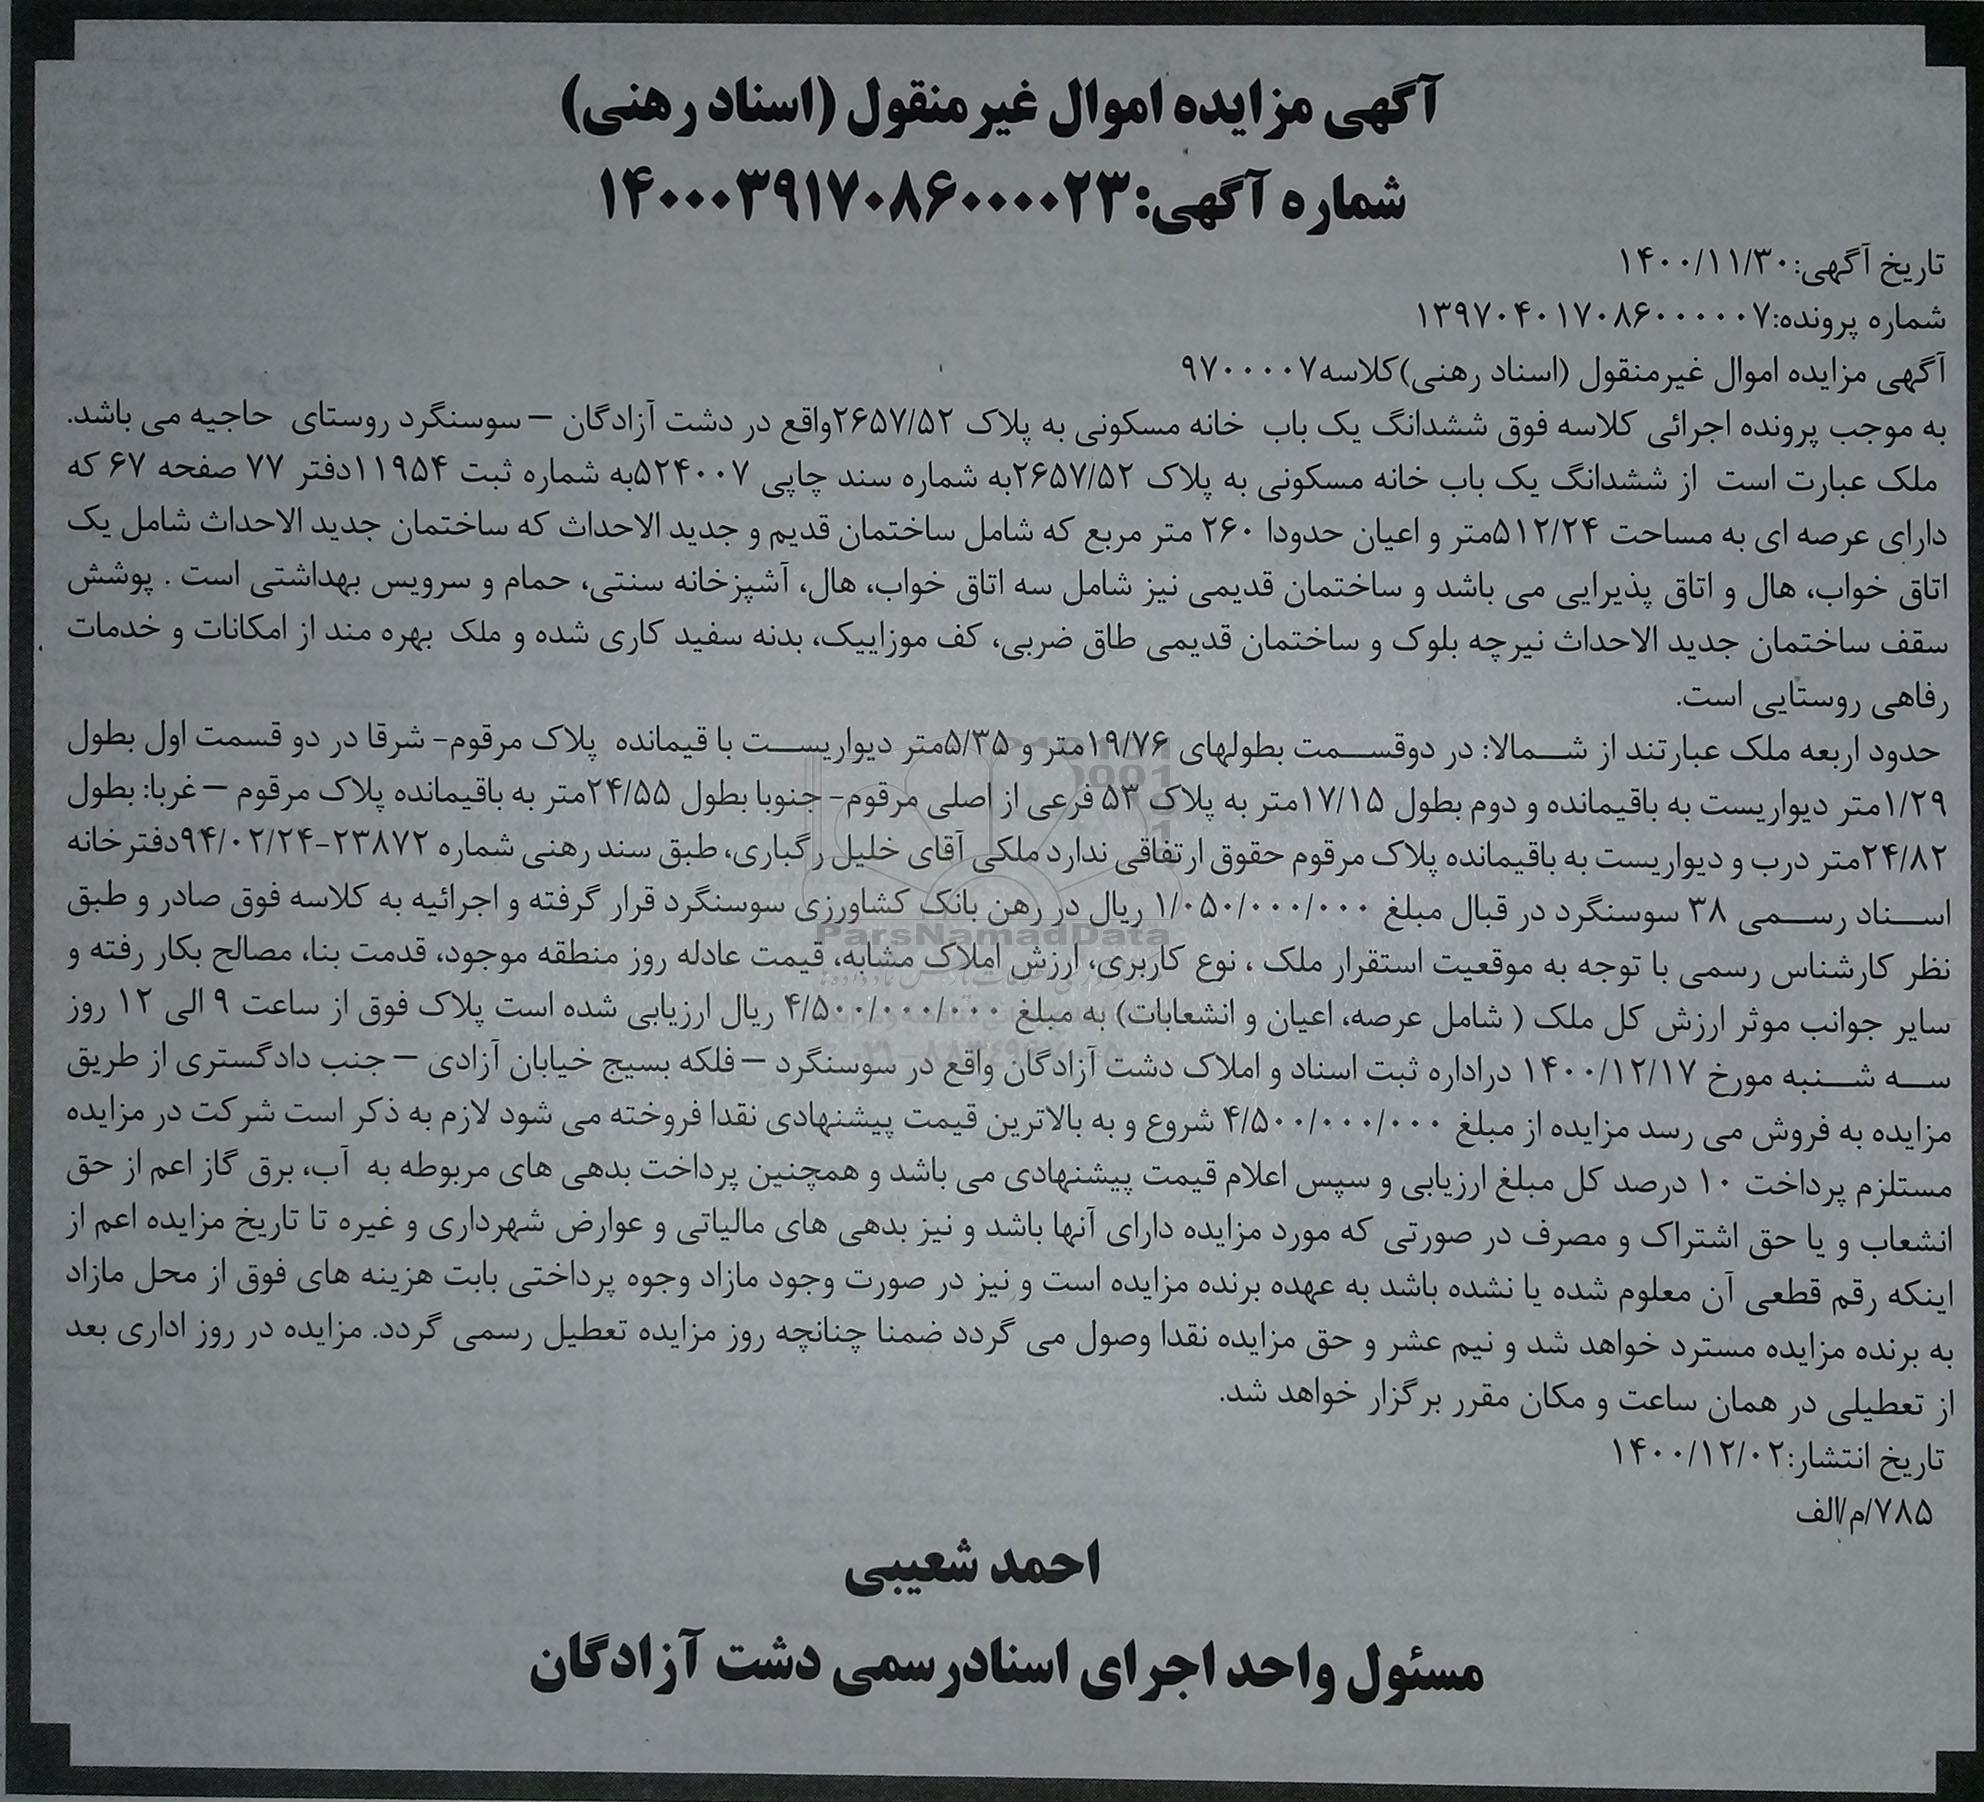 آگهی مزایده اموال غیرمنقول (اسناد رهنی)
شماره آگهی:۱۴۰۰۰۳۹۱۷۰۸۶۰۰۰۰۲۳
تاریخ آگهی:۱۴۰۰/۱۱/۳۰
شماره پرونده:۱۳۹۷۰۴۰۱۷۰۸۶۰۰۰۰۰۷
آگهی مزایده اموال غیرمنقول (اسناد رهنی)کلاسه۹۷۰۰۰۰۷
به موجب پرونده اجرائی کلاسه فوق ششدانگ یک باب خانه مسکونی به پلاک ۲۶۵۷/۵۲واقع در دشت آزادگان –سوسنگرد روستای حاجیه می باشد.
ملک عبارت است از ششدانگ یک باب خانه مسکونی به پلاک ۲۶۵۷/۵۲به شماره سند چاپی ۵۲۴۰۰۷به شماره ثبت ۱۱۹۵۴دفتر ۷۷ صفحه ۶۷ که
دارای عرصه ای به مساحت ۵۱۲/۲۴متر و اعیان حدودا ۲۶۰ متر مربع که شامل ساختمان قدیم و جدید الاحداث که ساختمان جدید الاحداث شامل یک
اتاق خواب، هال و اتاق پذیرایی می باشد و ساختمان قدیمی نیز شامل سه اتاق خواب، هال، آشپزخانه سنتی، حمام و سرویس بهداشتی است . پوشش
سقف ساختمان جدید الاحداث نیرچه بلوک و ساختمان قدیمی طاق ضربی، کف موزاییک، بدنه سفید کاری شده و ملک بهره مند از امکانات و خدمات
رفاهی روستایی است.
حدود اربعه ملک عبارتند از شمالا: در دوقسمت بطولهای ۱۹/۷۶متر و ۵/۳۵متر دیواریست با قیمانده پلاک مرقوم- شرقا در دو قسمت اول بطول
۱/۲۹متر دیواریست به باقیمانده و دوم بطول ۱۷/۱۵متر به پلاک ۵۳ فرعی از اصلی مرقوم- جنوبا بطول ۲۴/۵۵متر به باقیمانده پلاک مرقوم –غربا: بطول
۲۴/۸۲متر درب و دیواریست به باقیمانده پلاک مرقوم حقوق ارتفاقی ندارد ملکی آقای خلیل رگباری، طبق سند رهنی شماره ۲۳۸۷۲-۹۴/۰۲/۲۴دفترخانه
اسناد رسمی ۳۸ سوسنگرد در قبال مبلغ ۱/۰۵۰/۰۰۰/۰۰۰ ریال در رهن بانک کشاورزی سوسنگرد قرار گرفته و اجرائیه به کلاسه فوق صادر و طبق
نظر کارشناس رسمی با توجه به موقعیت استقرار ملک ، نوع کاربری، ارزش املاک مشابه، قیمت عادله روز منطقه موجود، قدمت بنا، مصالح بکار رفته و
سایر جوانب موثر ارزش کل ملک ( شامل عرصه، اعیان و انشعابات) به مبلغ ۴/۵۰۰/۰۰۰/۰۰۰ ریال ارزیابی شده است پلاک فوق از ساعت ۹ الی ۱۲ روز
سه شنبه مورخ ۱۴۰۰/۱۲/۱۷ دراداره ثبت اسناد و املاک دشت آزادگان واقع در سوسنگرد –فلکه بسیج خیابان آزادی – جنب دادگستری از طریق
مزایده به فروش می رسد مزایده از مبلغ ۴/۵۰۰/۰۰۰/۰۰۰ شروع و به بالاترین قیمت پیشنهادی نقدا فروخته می شود لازم به ذکر است شرکت در مزایده
مستلزم پرداخت ۱۰ درصد کل مبلغ ارزیابی و سپس اعلام قیمت پیشنهادی می باشد و همچنین پرداخت بدهی های مربوطه به آب، برق گاز اعم از حق
انشعاب و یا حق اشتراک و مصرف در صورتی که مورد مزایده دارای آنها باشد و نیز بدهی های مالیاتی و عوارض شهرداری و غیره تا تاریخ مزایده اعم از
اینکه رقم قطعی آن معلوم شده یا نشده باشد به عهده برنده مزایده است و نیز در صورت وجود مازاد وجوه پرداختی بابت هزینه های فوق از محل مازاد
به برنده مزایده مسترد خواهد شد و نیم عشر و حق مزایده نقدا وصول می گردد ضمنا چنانچه روز مزایده تعطیل رسمی گردد. مزایده در روز اداری بعد
از تعطیلی در همان ساعت و مکان مقرر برگزار خواهد شد.
تاریخ انتشار:۱۴۰۰/۱۲/۰۲
۷۸۵/م/الف
احمد شعیبی
مسئول واحد اجرای اسنادرسمی دشت آزادگان
ParsNamadData